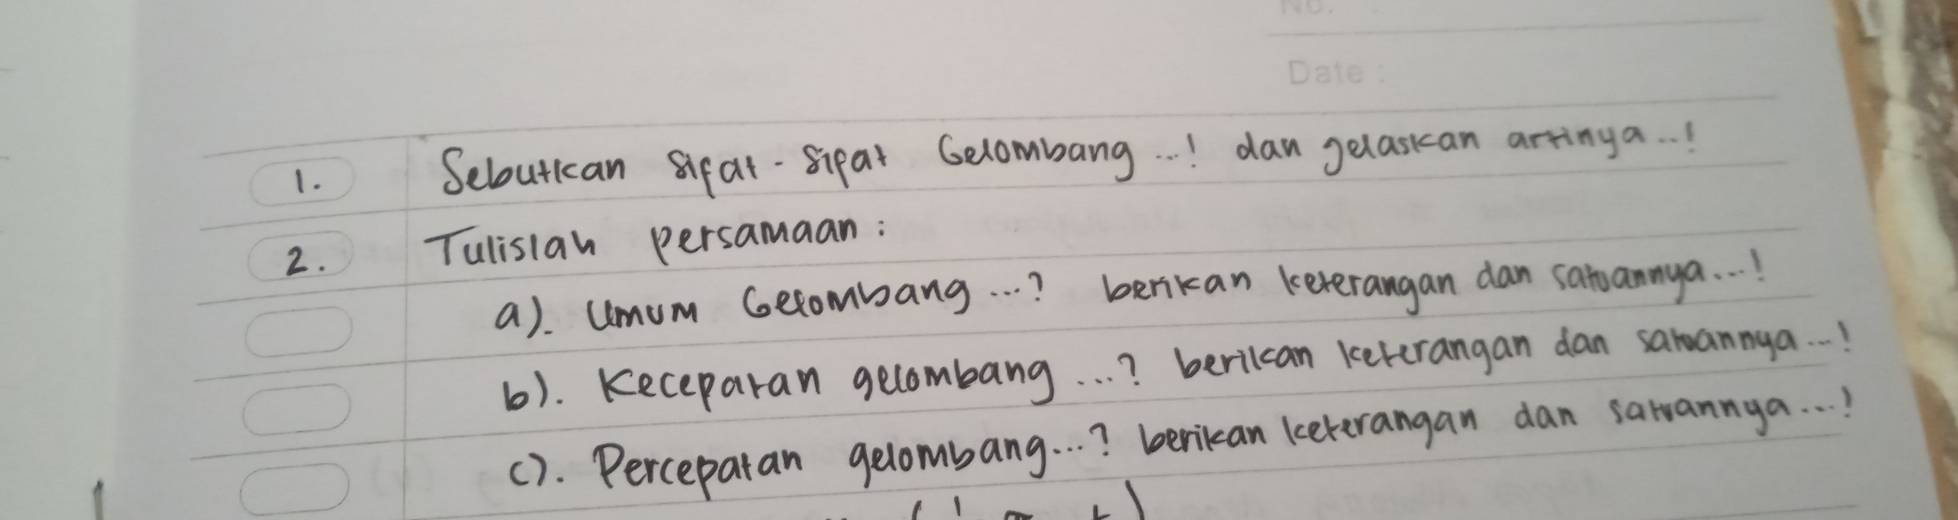 No.
Date :
1. Sebutkan sifat-sifat Gelombang ...! dan gelaskan artinya ..!
2. Tulislah persamaan :
a). Umum Gelombang ...? berikan keterangan dan satuannya ...!
b). Kecepatan gelombang ...? berikan keterangan dan satuannya ...!
c). Percepatan gelombang ...? berikan keterangan dan satuannya ...!